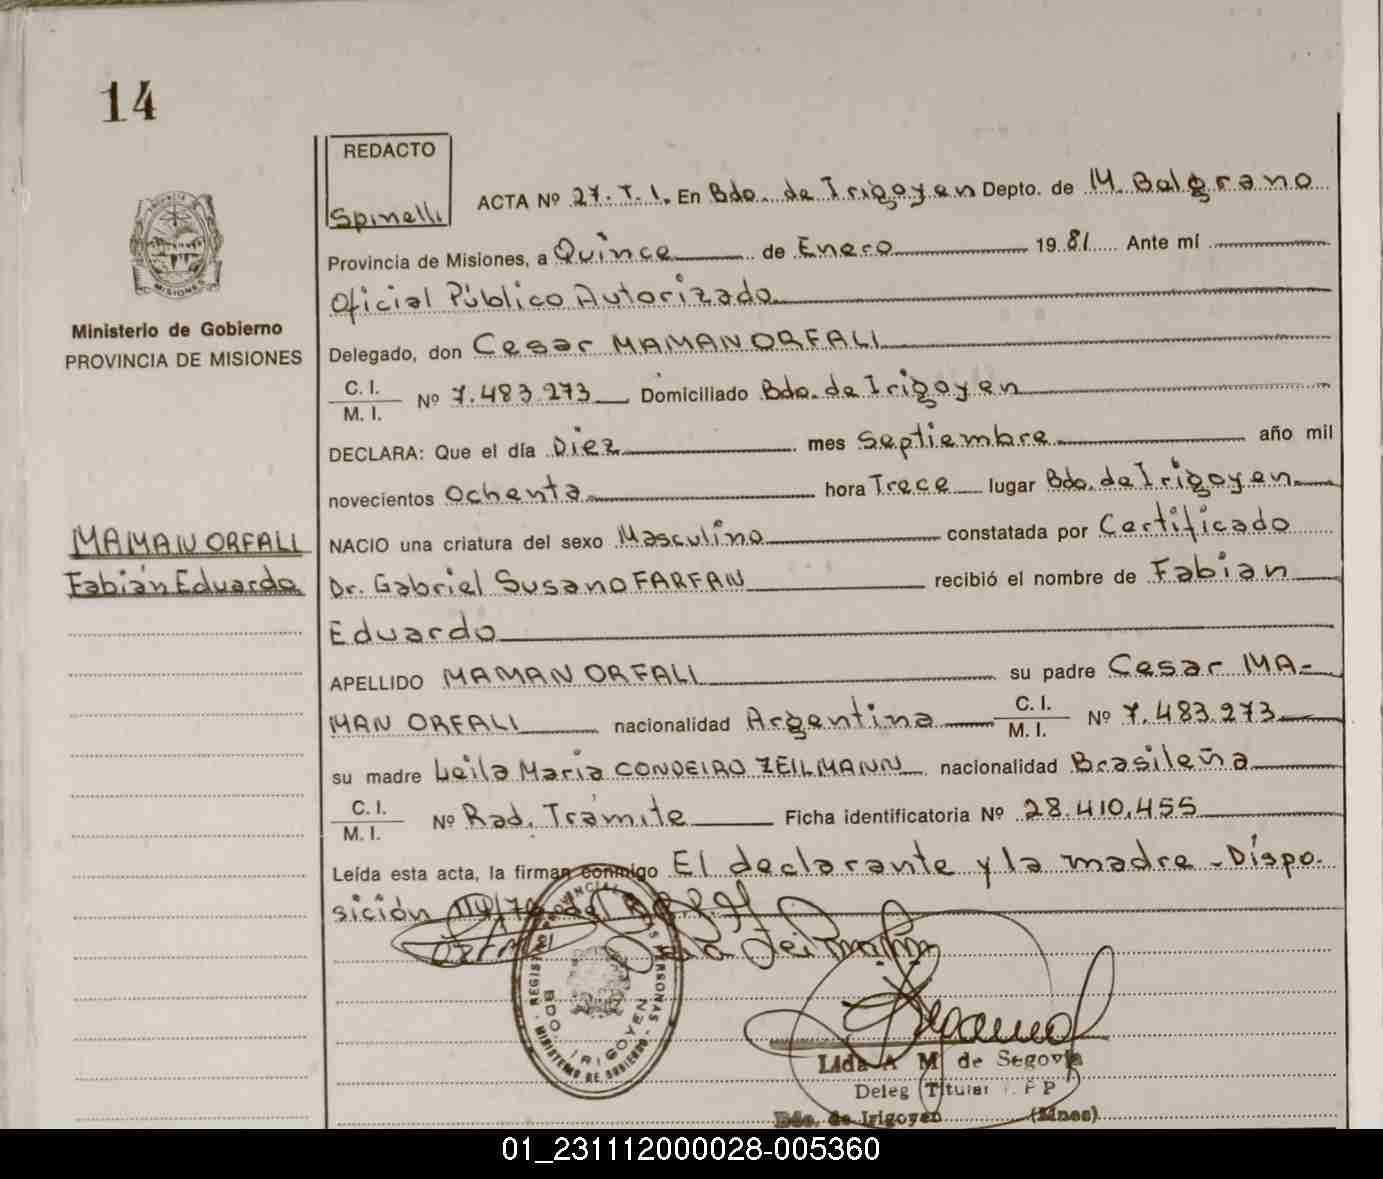 14
REDACTO
Spinelli
ACTA Nº 27. T. I. En Bdo. de Irigoyen Depto. de M. Belgrano
Provincia de Misiones, a Quince de Enero 19 81 Ante mí
Oficial Público Autorizado
Delegado, don Cesar MAMAN ORFALI
C. I.
M. I.
Nº 7.483.273 Domiciliado Bdo. de Irigoyen
DECLARA: Que el día Diez mes Septiembre año mil
novecientos Ochenta hora Trece lugar Bdo. de Irigoyen
NACIO una criatura del sexo Masculino constatada por Certificado
Dr. Gabriel Susano FARFAN recibió el nombre de Fabian
Eduardo
APELLIDO MAMAN ORFALI su padre Cesar MA-
MAN ORFALI nacionalidad Argentina C. I.
M. I.
Nº 7.483.273
su madre Leila Maria CONDEIRO ZEILMANN nacionalidad Brasileña
C. I.
M. I.
Nº Rad. Trámite Ficha identificatoria Nº 28.410.455
Leída esta acta, la firman conmigo El declarante y la madre - Dispo-
sición
MISIONES
Ministerio de Gobierno
PROVINCIA DE MISIONES
MAMAN ORFALI
Fabián Eduardo
REGISTRO PROVINCIAL DE LAS PERSONAS
BDO. IRIGOYEN
MINISTERIO DE GOBIERNO
Lida A M de Segovia
Deleg Titular
Bdo. de Irigoyen (Mnes)
01_231112000028-005360